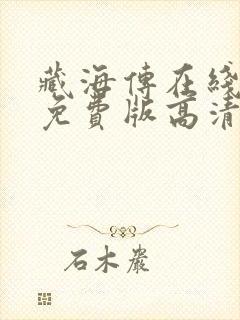 藏海傳在綫
免費版高清
石木巖